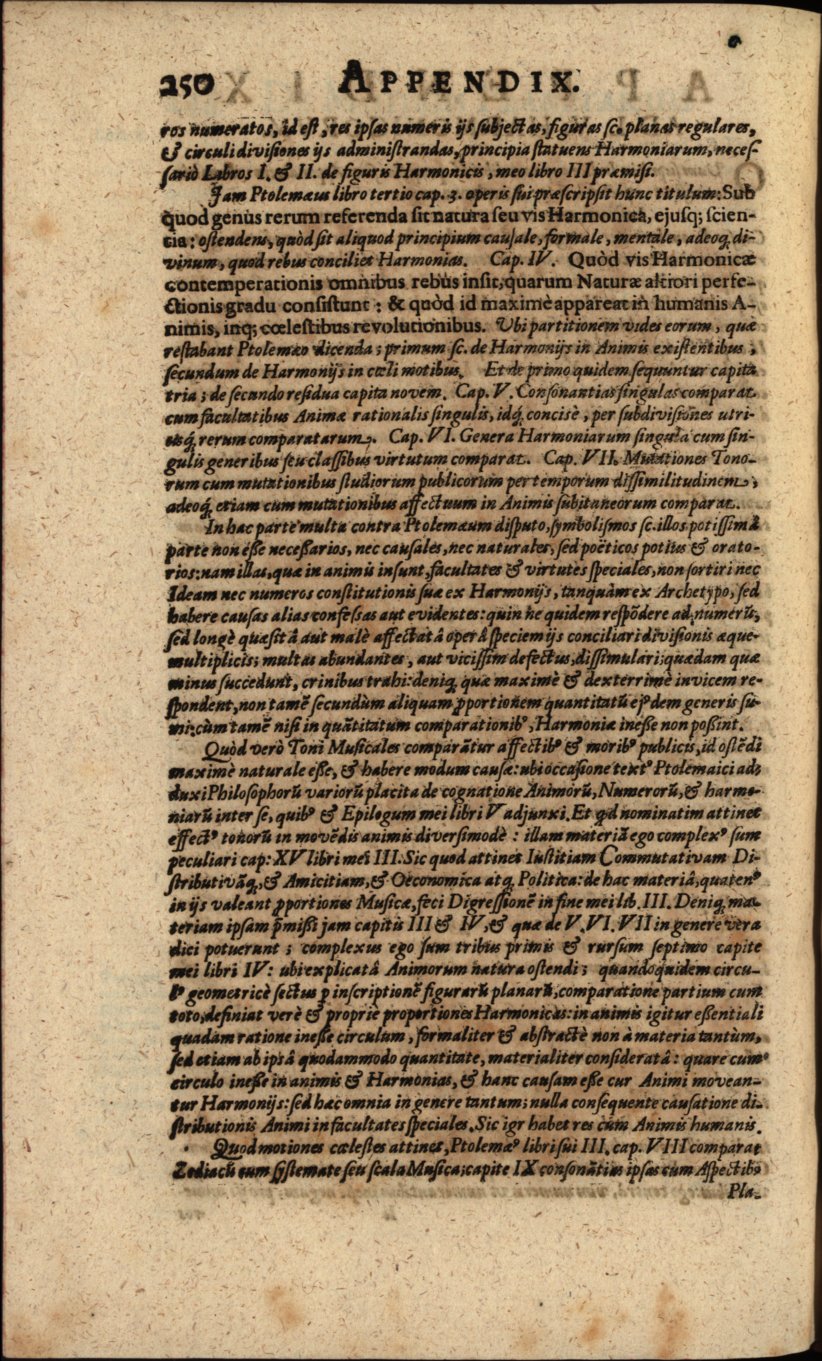 250 APPENDIX.
ros numeratos, id est, res ipsas numeris ijs subjectas, figuras sc. planas regulares,
& circuli divisiones ijs administrandas, principia statuens Harmoniarum, neces-
sariò Libros I. & II. de figuris Harmonicis, meo libro III præmisi.
Jam Ptolemæus libro tertio cap. 3. operis sui præscripsit hunc titulum: Sub
quod genus rerum referenda sit natura seu vis Harmonica, ejusq; scien-
tia: ostendens, quòd sit aliquod principium causale, formale, mentale, adeoq, di-
vinum, quod rebus conciliet Harmonias. Cap. IV. Quòd vis Harmonicæ
contemperationis omnibus rebus insit, quarum Naturæ altiori perfe-
ctionis gradu consistunt: & quòd id maximè appareat in humanis A-
nimis, inq; cœlestibus revolutionibus. Ubi partitionem vides eorum, quæ
restabant Ptolemæo dicenda; primum sc. de Harmonijs in Animis existentibus,
secundum de Harmonijs in cœli motibus. Et de primo quidem sequuntur capita
tria; de secundo residua capita novem. Cap. V. Consonantias singulas comparat
cum facultatibus Animæ rationalis singulis, idq́, concisè, per subdivisiones utri-
usq́, rerum comparatarum. Cap. VI. Genera Harmoniarum singula cum sin-
gulis generibus seu classibus virtutum comparat. Cap. VII. Mutationes Tono-
rum cum mutationibus studiorum publicorum per temporum dissimilitudinem,
adeoq́, etiam cum mutationibus affectuum in Animis subitaneorum comparat.
In hac parte multa contra Ptolemæum disputo, symbolismos sc. illos potissimâ
parte non esse necessarios, nec causales, nec naturales, sed poëticos potius & orato-
rios: nam illas, quæ in animis insunt, facultates & virtutes speciales, non sortiri nec
Ideam nec numeros constitutionis suæ ex Harmonijs, tanquàm ex Archetypo, sed
habere causas alias confessas aut evidentes: quin ne quidem respõdere ad numerũ,
sed longè quæsitâ aut malè affectatâ operâ speciem ijs conciliari divisionis æque-
multiplicis; multas abundantes, aut vicissim defectus, dissimulari; quædam quæ
minus succedunt, crinibus trahi: deniq, quæ maximè & dexterrimè invicem re-
spondent, non tamẽ secundùm aliquam ꝓportionem quantitatũ ejꝰdem generis su-
mi; cùm tamẽ nisi in quãtitatum comparationibꝰ, Harmoniæ inesse non possint.
Quòd verò Toni Musicales comparãtur affectibꝰ & moribꝰ publicis, id ostẽdi
maximè naturale esse, & habere modum causæ: ubi occasione textꝰ Ptolemaici ad-
duxi Philosophorũ variorũ placita de cognatione Animorũ, Numerorũ, & harmo-
niarũ inter se, quibꝰ & Epilogum mei libri V adjunxi. Et qd nominatim attinet
effectꝰ tonorũ in movẽdis animis diversimodè: illam materiã ego complexꝰ sum
peculiari cap: XV libri mei III. Sic quod attinet Iustitiam Commutativam Di-
stributivãq, & Amicitiam, & Oeconomica atq, Politica: de hac materiâ, quatenꝰ
in ijs valeant ꝓportiones Musicæ, feci Digressionẽ in fine mei lib. III. Deniq, ma-
teriam ipsam p̃misi jam capitis III & IV, & quæ de V. VI. VII in genere vera
dici potuerunt; complexus ego sum tribus primis & rursum septimo capite
mei libri IV: ubi explicatâ Animorum natura ostendi; quandoquidem circu-
lꝰ geometricè sectus ꝑ inscriptionẽ figurarũ planarũ, comparatione partium cum
toto, definiat verè & propriè proportiones Harmonicas: in animis igitur essentiali
quadam ratione inesse circulum, formaliter & abstractè non à materia tantùm,
sed etiam ab ipsâ quodammodo quantitate, materialiter consideratâ: quare cum
circulo inesse in animis & Harmonias, & hanc causam esse cur Animi movean-
tur Harmonijs: sed hæc omnia in genere tantum; nulla consequente causatione di-
stributionis Animi in facultates speciales. Sic igr habet res cùm Animis humanis.
Quod motiones cœlestes attinet, Ptolemæꝰ libri sui III. cap. VIII comparat
Zodiacũ cum systemate seu scala Musica; capite IX consonãtias ipsas cum Aspectibꝰ
Pla-